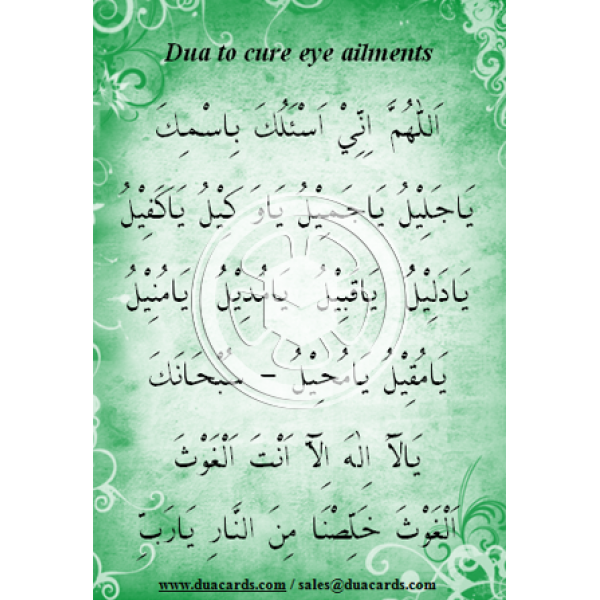 Dua to cure eye ailments
اَللّٰهُمَّ اِنِّيْ اَسْئَلُكَ بِاسْمِكَ
يَاجَلِيْلُ يَاجَمِيْلُ يَاوَكِيْلُ يَاكَفِيْلُ
يَادَلِيْلُ يَاقَبِيْلُ يَامُدِيْلُ يَامُنِيْلُ
يَامُقِيْلُ يَامُحِيْلُ - سُبْحَانَكَ
يَالَآ اِلٰهَ اِلَّآ اَنْتَ اَلْغَوْثَ
اَلْغَوْثَ خَلِّصْنَا مِنَ النَّارِ يَارَبِّ
www.duacards.com / sales@duacards.com